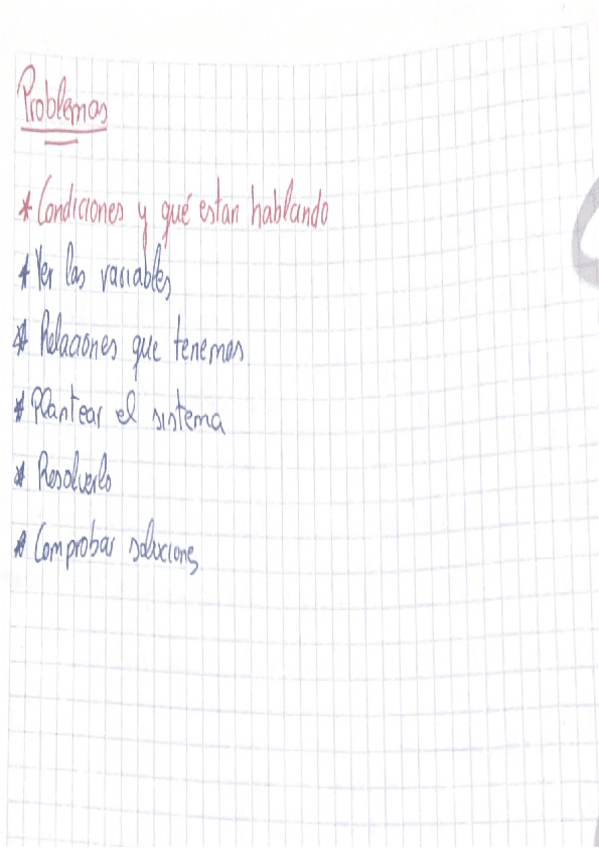 Problemas
* Condiciones y qué estan hablando
* Ver las variables
* Relaciones que tenemos
* Plantear el sistema
* Resolverlo
* Comprobar soluciones